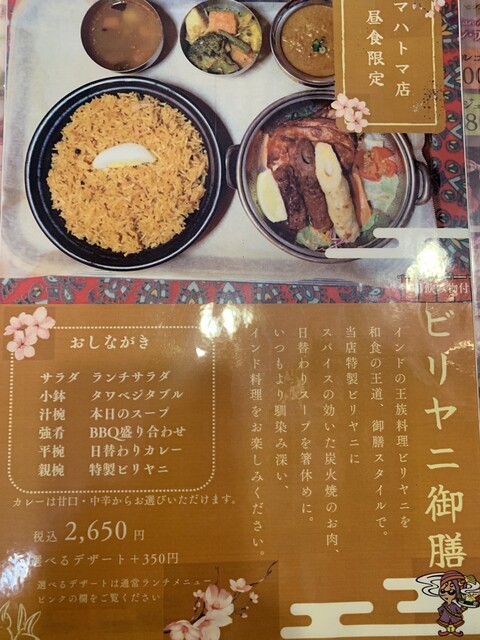 マハトマ店
昼食限定
ビリヤニ御膳
インドの王族料理ビリヤニを
和食の王道、御膳スタイルで。
当店特製ビリヤニに
スパイスの効いた炭火焼のお肉、
日替わりスープを箸休めに。
いつもより馴染み深い、
インド料理をお楽しみください。
おしながき
サラダ ランチサラダ
小鉢 タワベジタブル
汁椀 本日のスープ
強肴 BBQ盛り合わせ
平椀 日替わりカレー
親椀 特製ビリヤニ
カレーは甘口・中辛からお選びいただけます。
税込 2,650 円
選べるデザート+350円
選べるデザートは通常ランチメニュー
ピンクの欄をご覧ください